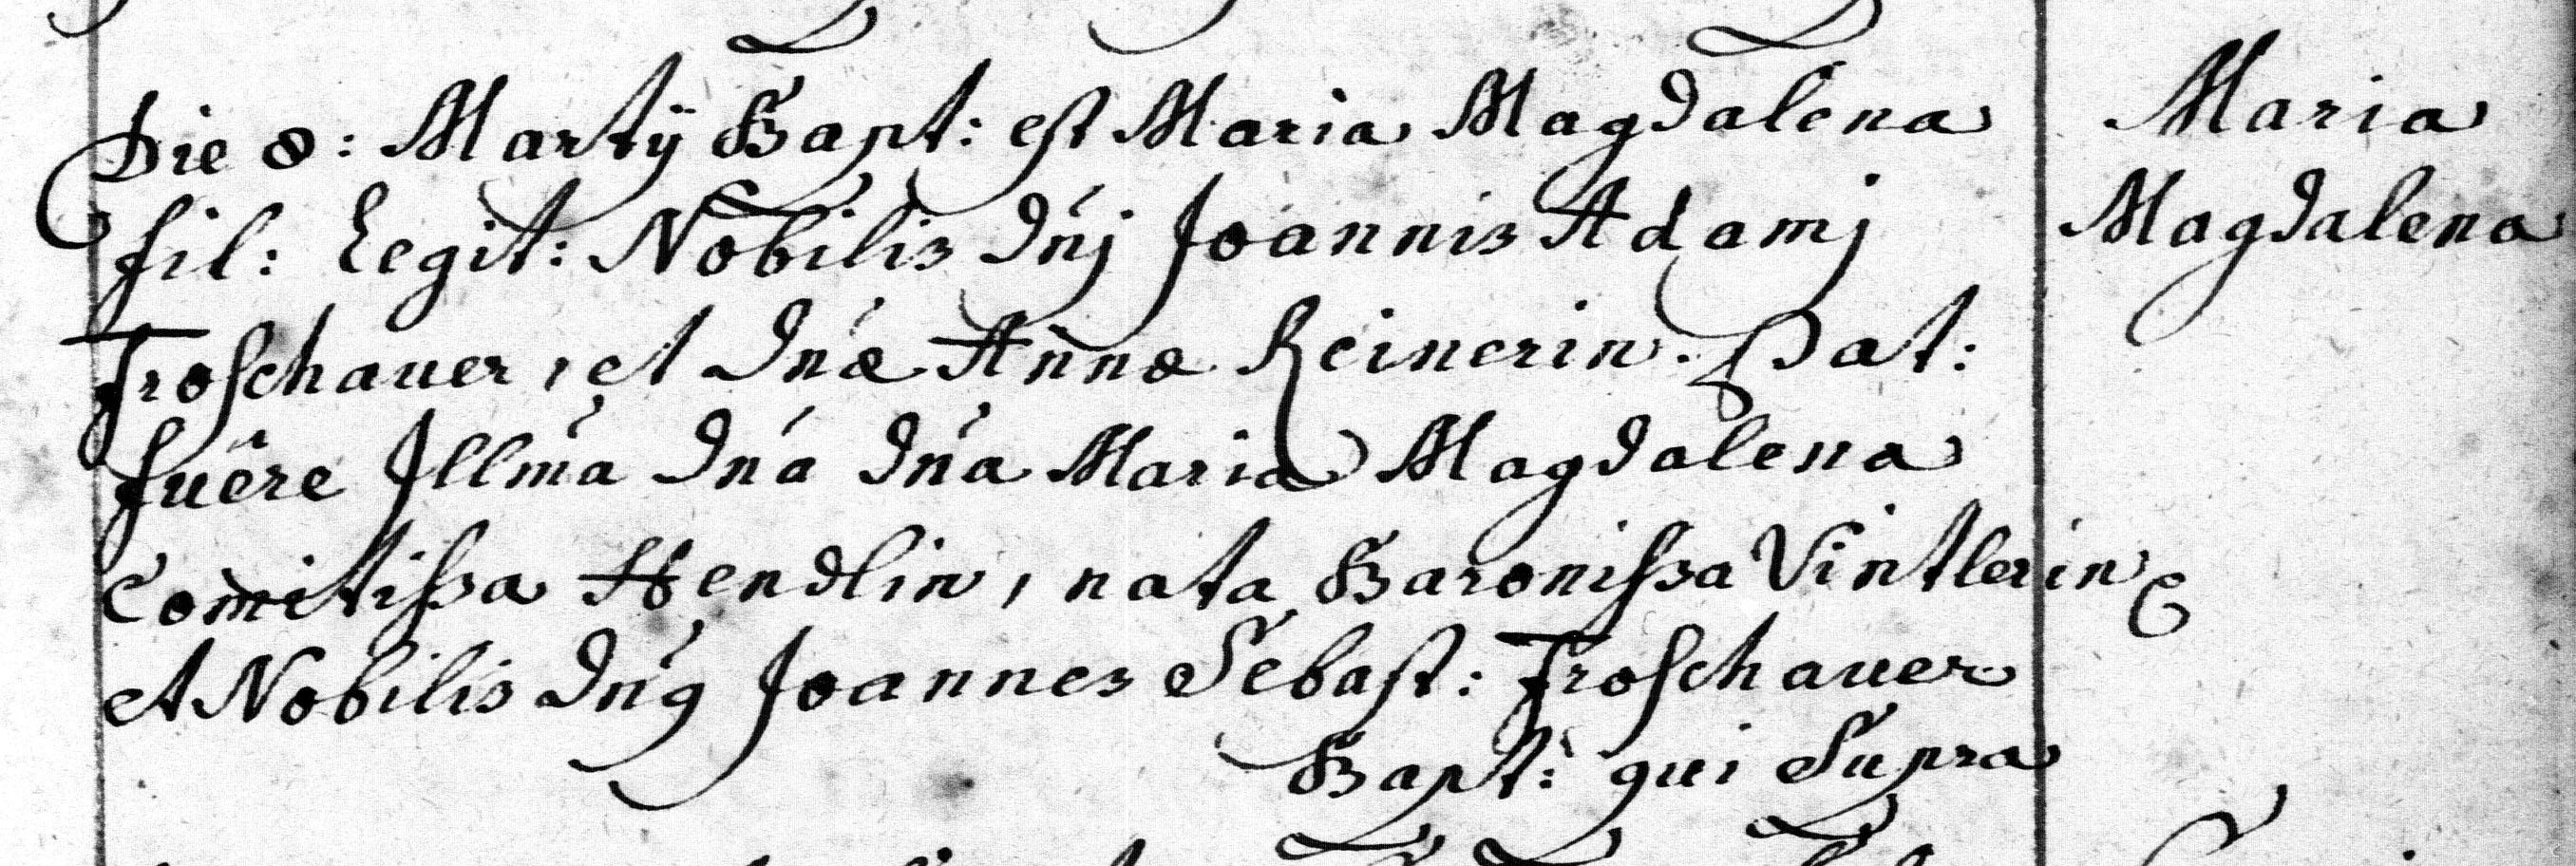 Die 8: Martÿ Bapt: est Maria Magdalena
fil: Legit: Nobilis Dnj Joannis Adamj
Froschauer, et Dnæ Annæ Reinerin. Pat:
fuêre Jllma Dna Dna Maria Magdalena
Comitissa Hendlin, nata Baronissa Vintlerin
et Nobilis Dnꝯ Joannes Sebast: Froschauer
Bapt: qui Supra
Maria
Magdalena